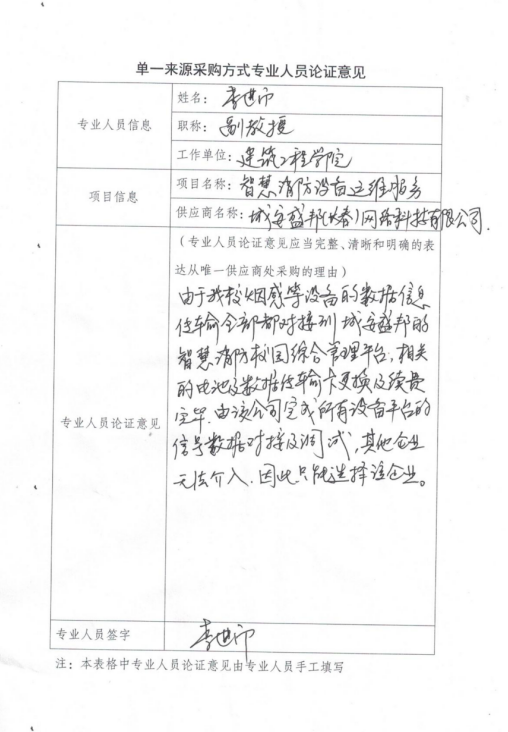 单一来源采购方式专业人员论证意见
专业人员信息
姓名：李世
职称：副教授
工作单位：建筑工程学院
项目信息
项目名称：智慧消防设备运维服务
供应商名称：城安盛邦(长春)网络科技有限公司.
专业人员论证意见
（专业人员论证意见应当完整、清晰和明确的表
达从唯一供应商处采购的理由）
由于我校烟感等设备的数据信息
传输全部都对接到城安盛邦的
智慧消防校园综合管理平台，相关
的电池及数据传输卡更换及续费
完毕.由该公司完成所有设备平台的
信号数据对接及调试，其他企业
无法介入.因此只能选择该企业。
专业人员签字
李世
注：本表格中专业人员论证意见由专业人员手工填写